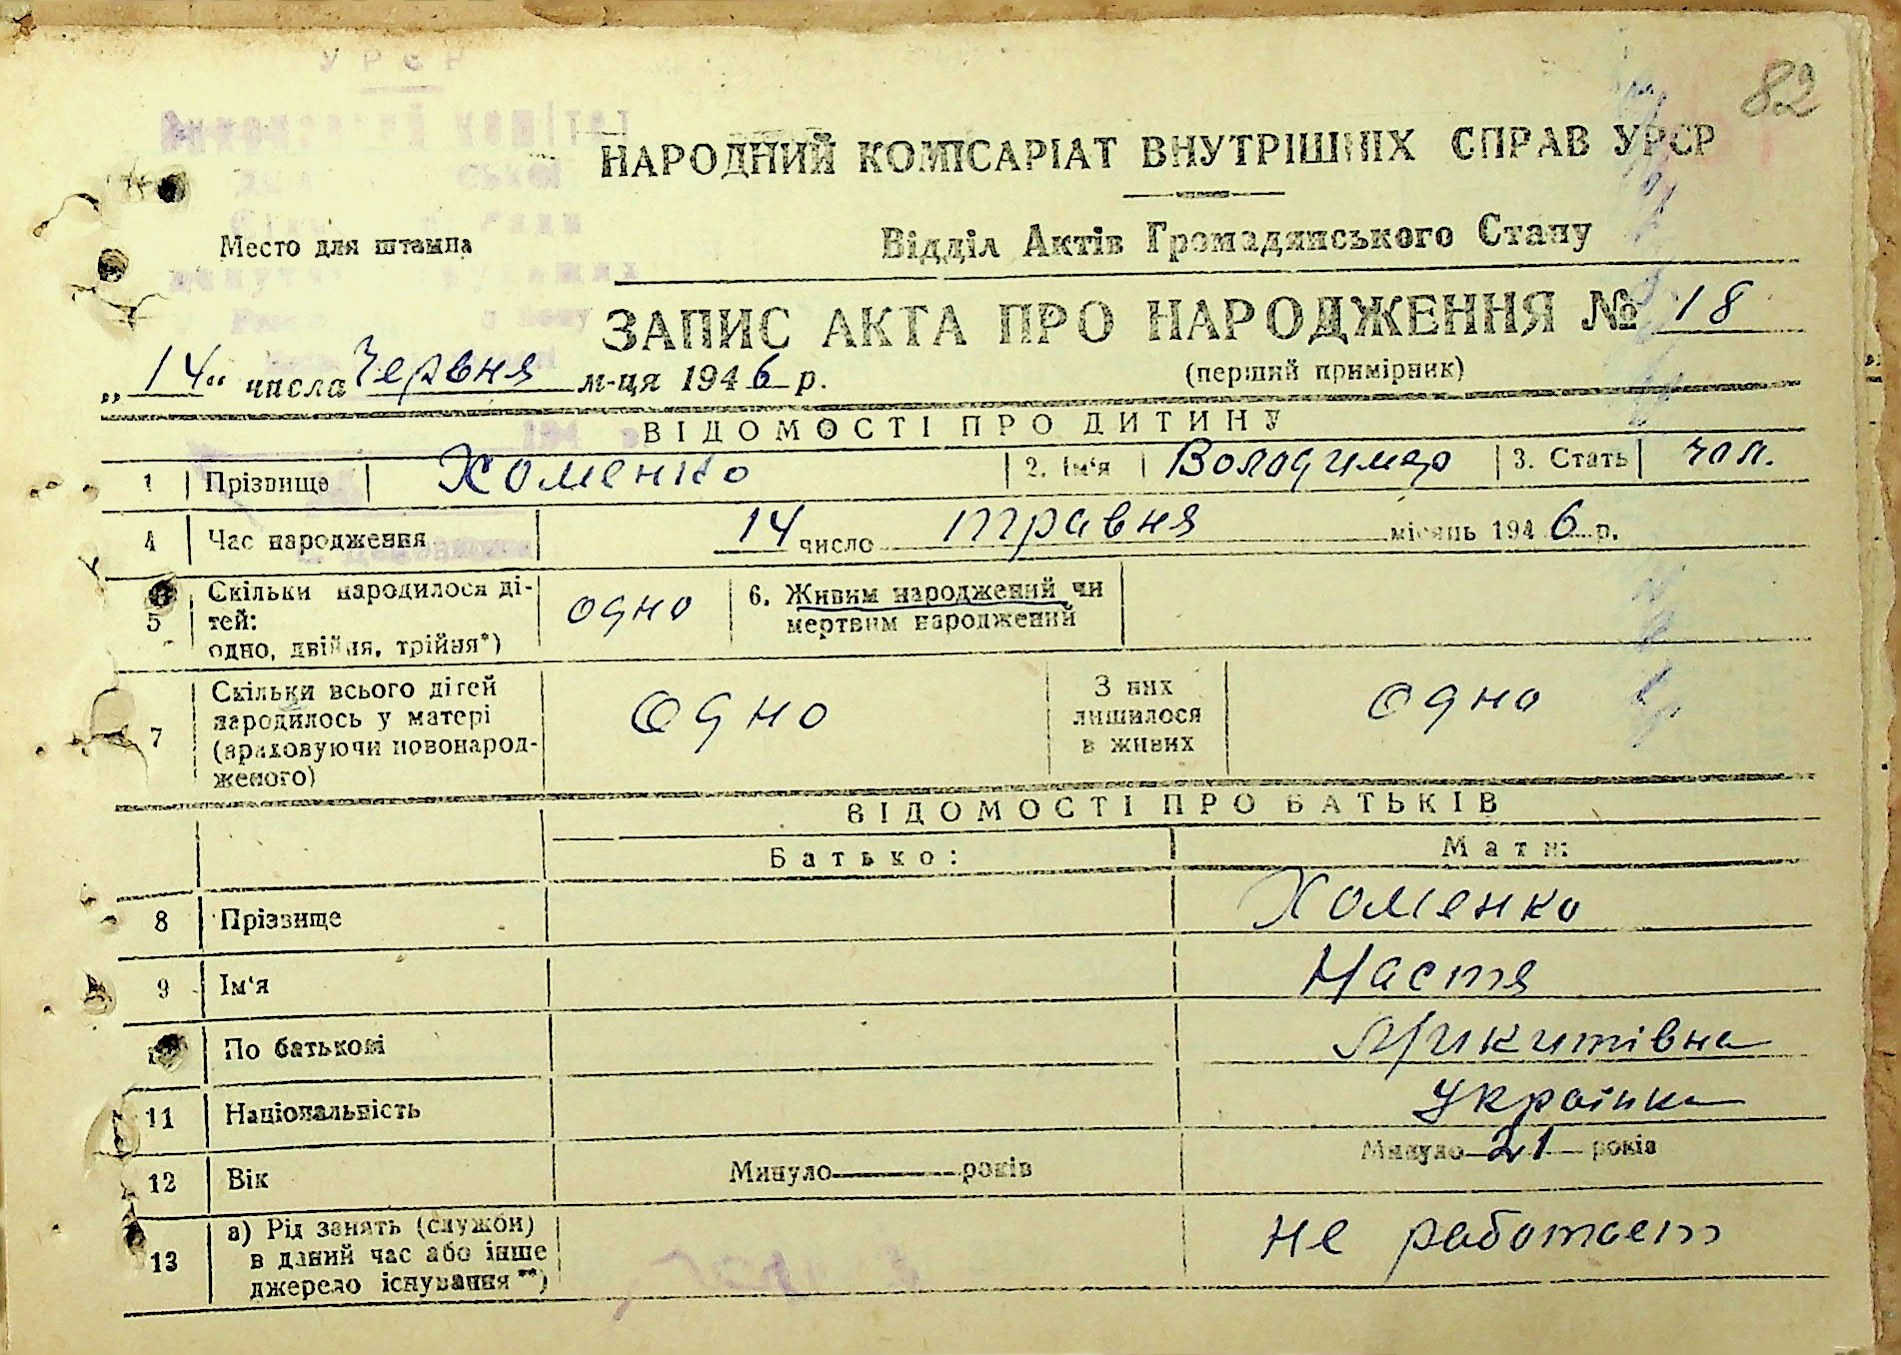 82
УРСР
НАРОДНИЙ КОМІСАРІАТ ВНУТРІШНІХ СПРАВ УРСР
Место для штампа
Відділ Актів Громадянського Стану
ЗАПИС АКТА ПРО НАРОДЖЕННЯ № 18
„14“ числа Червня м-ця 1946 р.
(перший примірник)
ВІДОМОСТІ ПРО ДИТИНУ
1 Прізвище Хоменко 2. Ім'я Володимир 3. Стать чол.
4 Час народження 14 число травня місяць 1946 р.
5 Скільки народилося ді-
тей:
одно, двійня, трійня*) одно 6. Живим народжений чи
мертвим народжений
7 Скільки всього дітей
народилось у матері
(враховуючи новонарод-
женого) одно З них
лишилося
в живих одно
ВІДОМОСТІ ПРО БАТЬКІВ
Батько: Мати:
8 Прізвище Хоменко
9 Ім'я Настя
По батькові Микитівна
11 Національність Українка
12 Вік Минуло років Минуло 21 років
13 а) Рід занять (служби)
в даний час або інше
джерело існування**) не работает